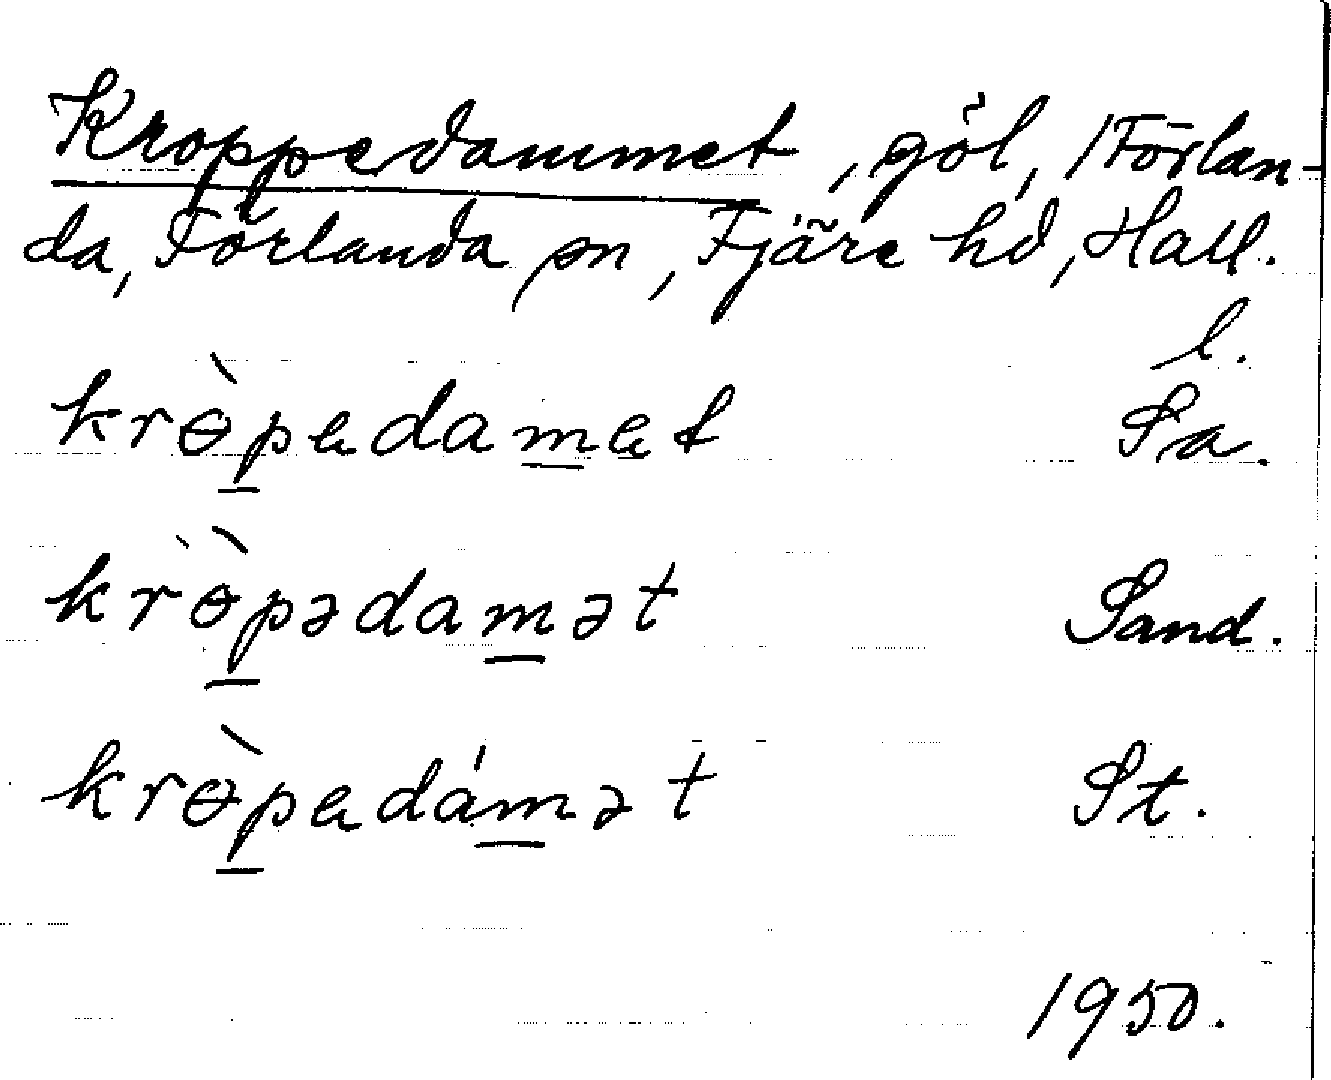 Kroppedammet, göl, /Förlan-
da, Förlanda sn, Fjäre hd, Hall.
l.
krɵ̀pedamet Sa.
krɵ̀pədamət Sand.
krɵ̀pedámət St.
1950.